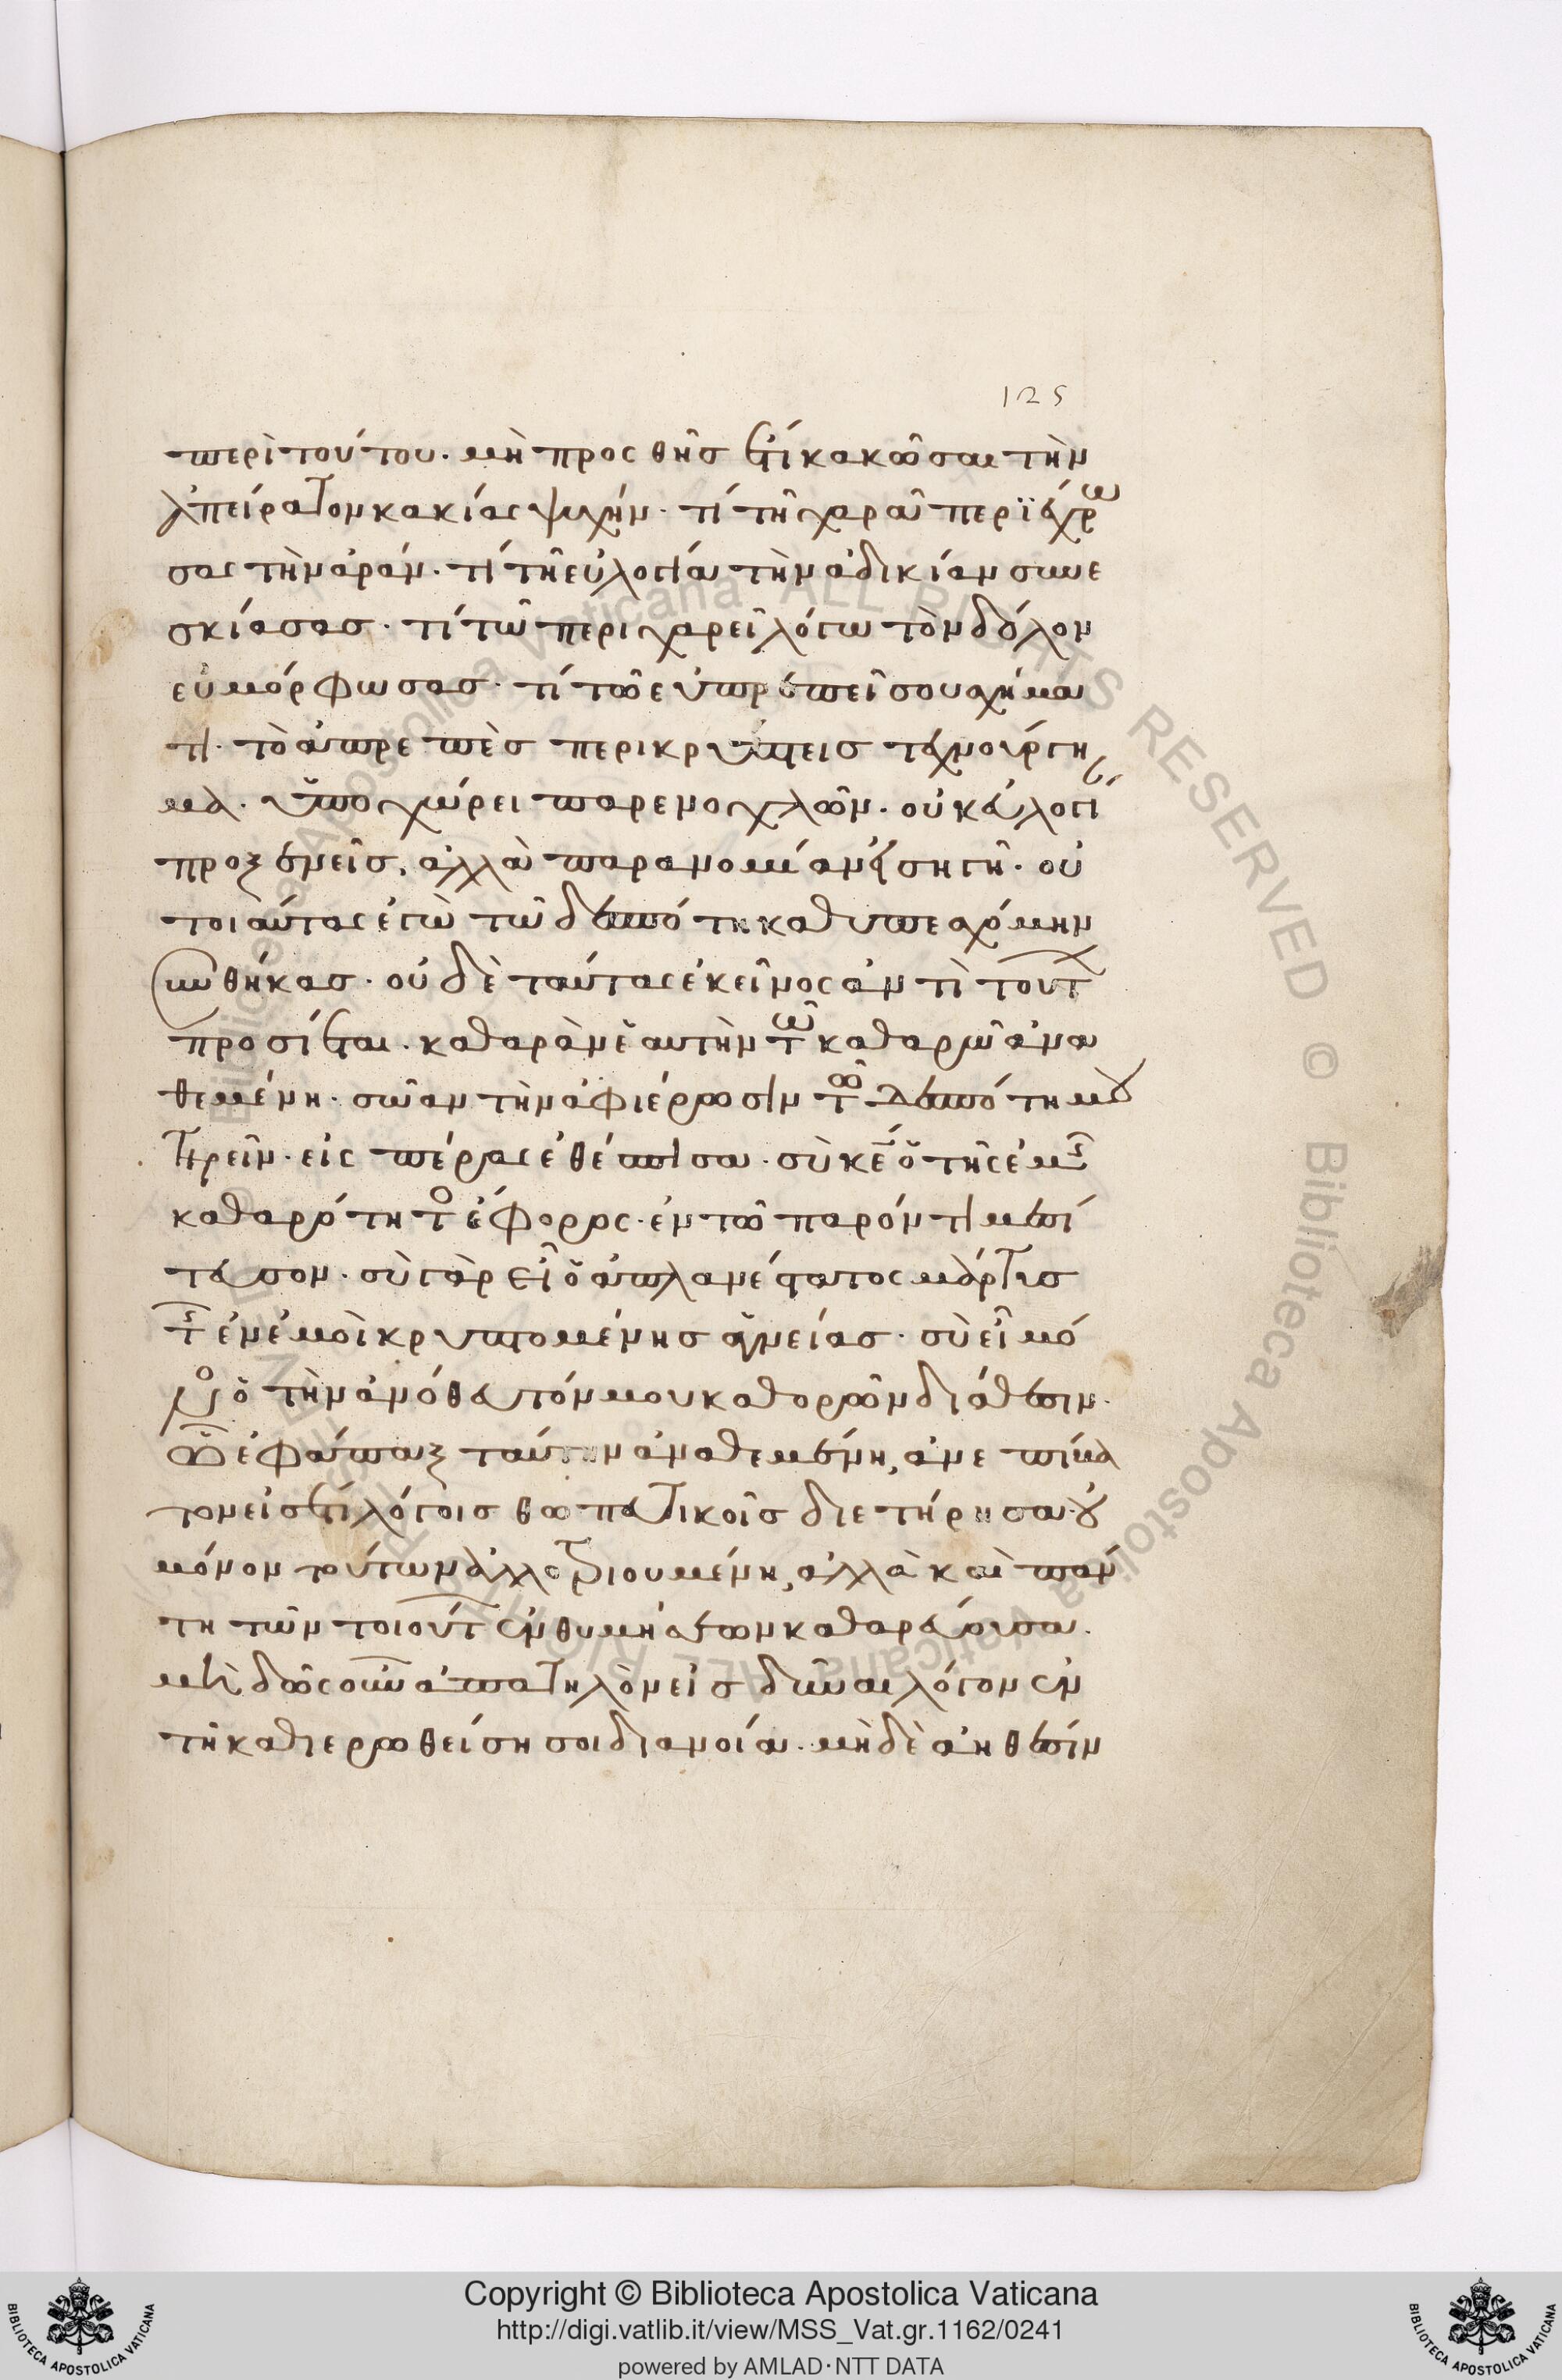 125
περὶ τούτου. μὴ προσθῆς ἔτι κακῶσαι τὴν
ἀπείρατον κακίας ψυχήν. τί τῆ χαρᾶ περιέχρω
σας τὴν ἀράν. τί τῆ εὐλογία τὴν ἀδικίαν συνε
σκίασας. τί τῶ περιχαρεῖ λόγω τὸν δόλον
εὐμόρφωσας. τί τῶ εὐπρεπεῖ σου σχήμα
τι. τὸ ἀπρεπὲς περικρύπτεις τεχνούργη
μα. ὑπο χώρει παρενοχλῶν. οὐκ εὐλογί
προξενεῖς, ἀλλὰ παρανομίαν εἰσηγῆ. οὐ
τοιαύτας ἐγὼ τῶ δεσπότη καθυπεσχόμην
συνθήκας. οὐδὲ ταύτας ἐκεῖνος ἀντὶ τούτ
προσίεται. καθαρὰν ἑαυτὴν τῶ καθαρῶ ἀνα
θεμένη. σώαν τὴν ἀφιέρωσιν τῶ δεσπότη μου
τηρεῖν. εἰς πέρας ἐθέσπισα. σὺ κε ὁ τῆς ἐμῆς
καθαρότητος ἔφορος. ἐν τῶ παρόντι μεσί
τευσον. σὺ γὰρ εἶ ὁ ἀπλανέστατος μάρτυς
τῆς ἐν ἐμοὶ κρυπτομένης ἁγνείας. σὺ εἶ μό
νος ὁ τὴν ἀνόθευτόν μου καθορῶν διάθεσιν.
ἣν ἐφάπαξ ταύτην ἀναθεμένη, ἀνεπίμι
κτον εἰσέτι λόγοις θωπευτικοῖς διετήρησα. οὐ
μόνον τούτων ἀλλοτριουμένη, ἀλλὰ καὶ παν
τη τῶν τοιούτ ἐνθυμήσεων καθαρεύουσα.
μὴ δῶς οὖν ἀπατηλὸν εἰσδῦναι λόγον ἐν
τῆ καθιερωθείση σοι διανοία. μὴδὲ ἀηθεσίν
Copyright © Biblioteca Apostolica Vaticana
http://digi.vatlib.it/view/MSS_Vat.gr.1162/0241
powered by AMLAD·NTT DATA
BIBLIOTECA APOSTOLICA VATICANA
BIBLIOTECA APOSTOLICA VATICANA